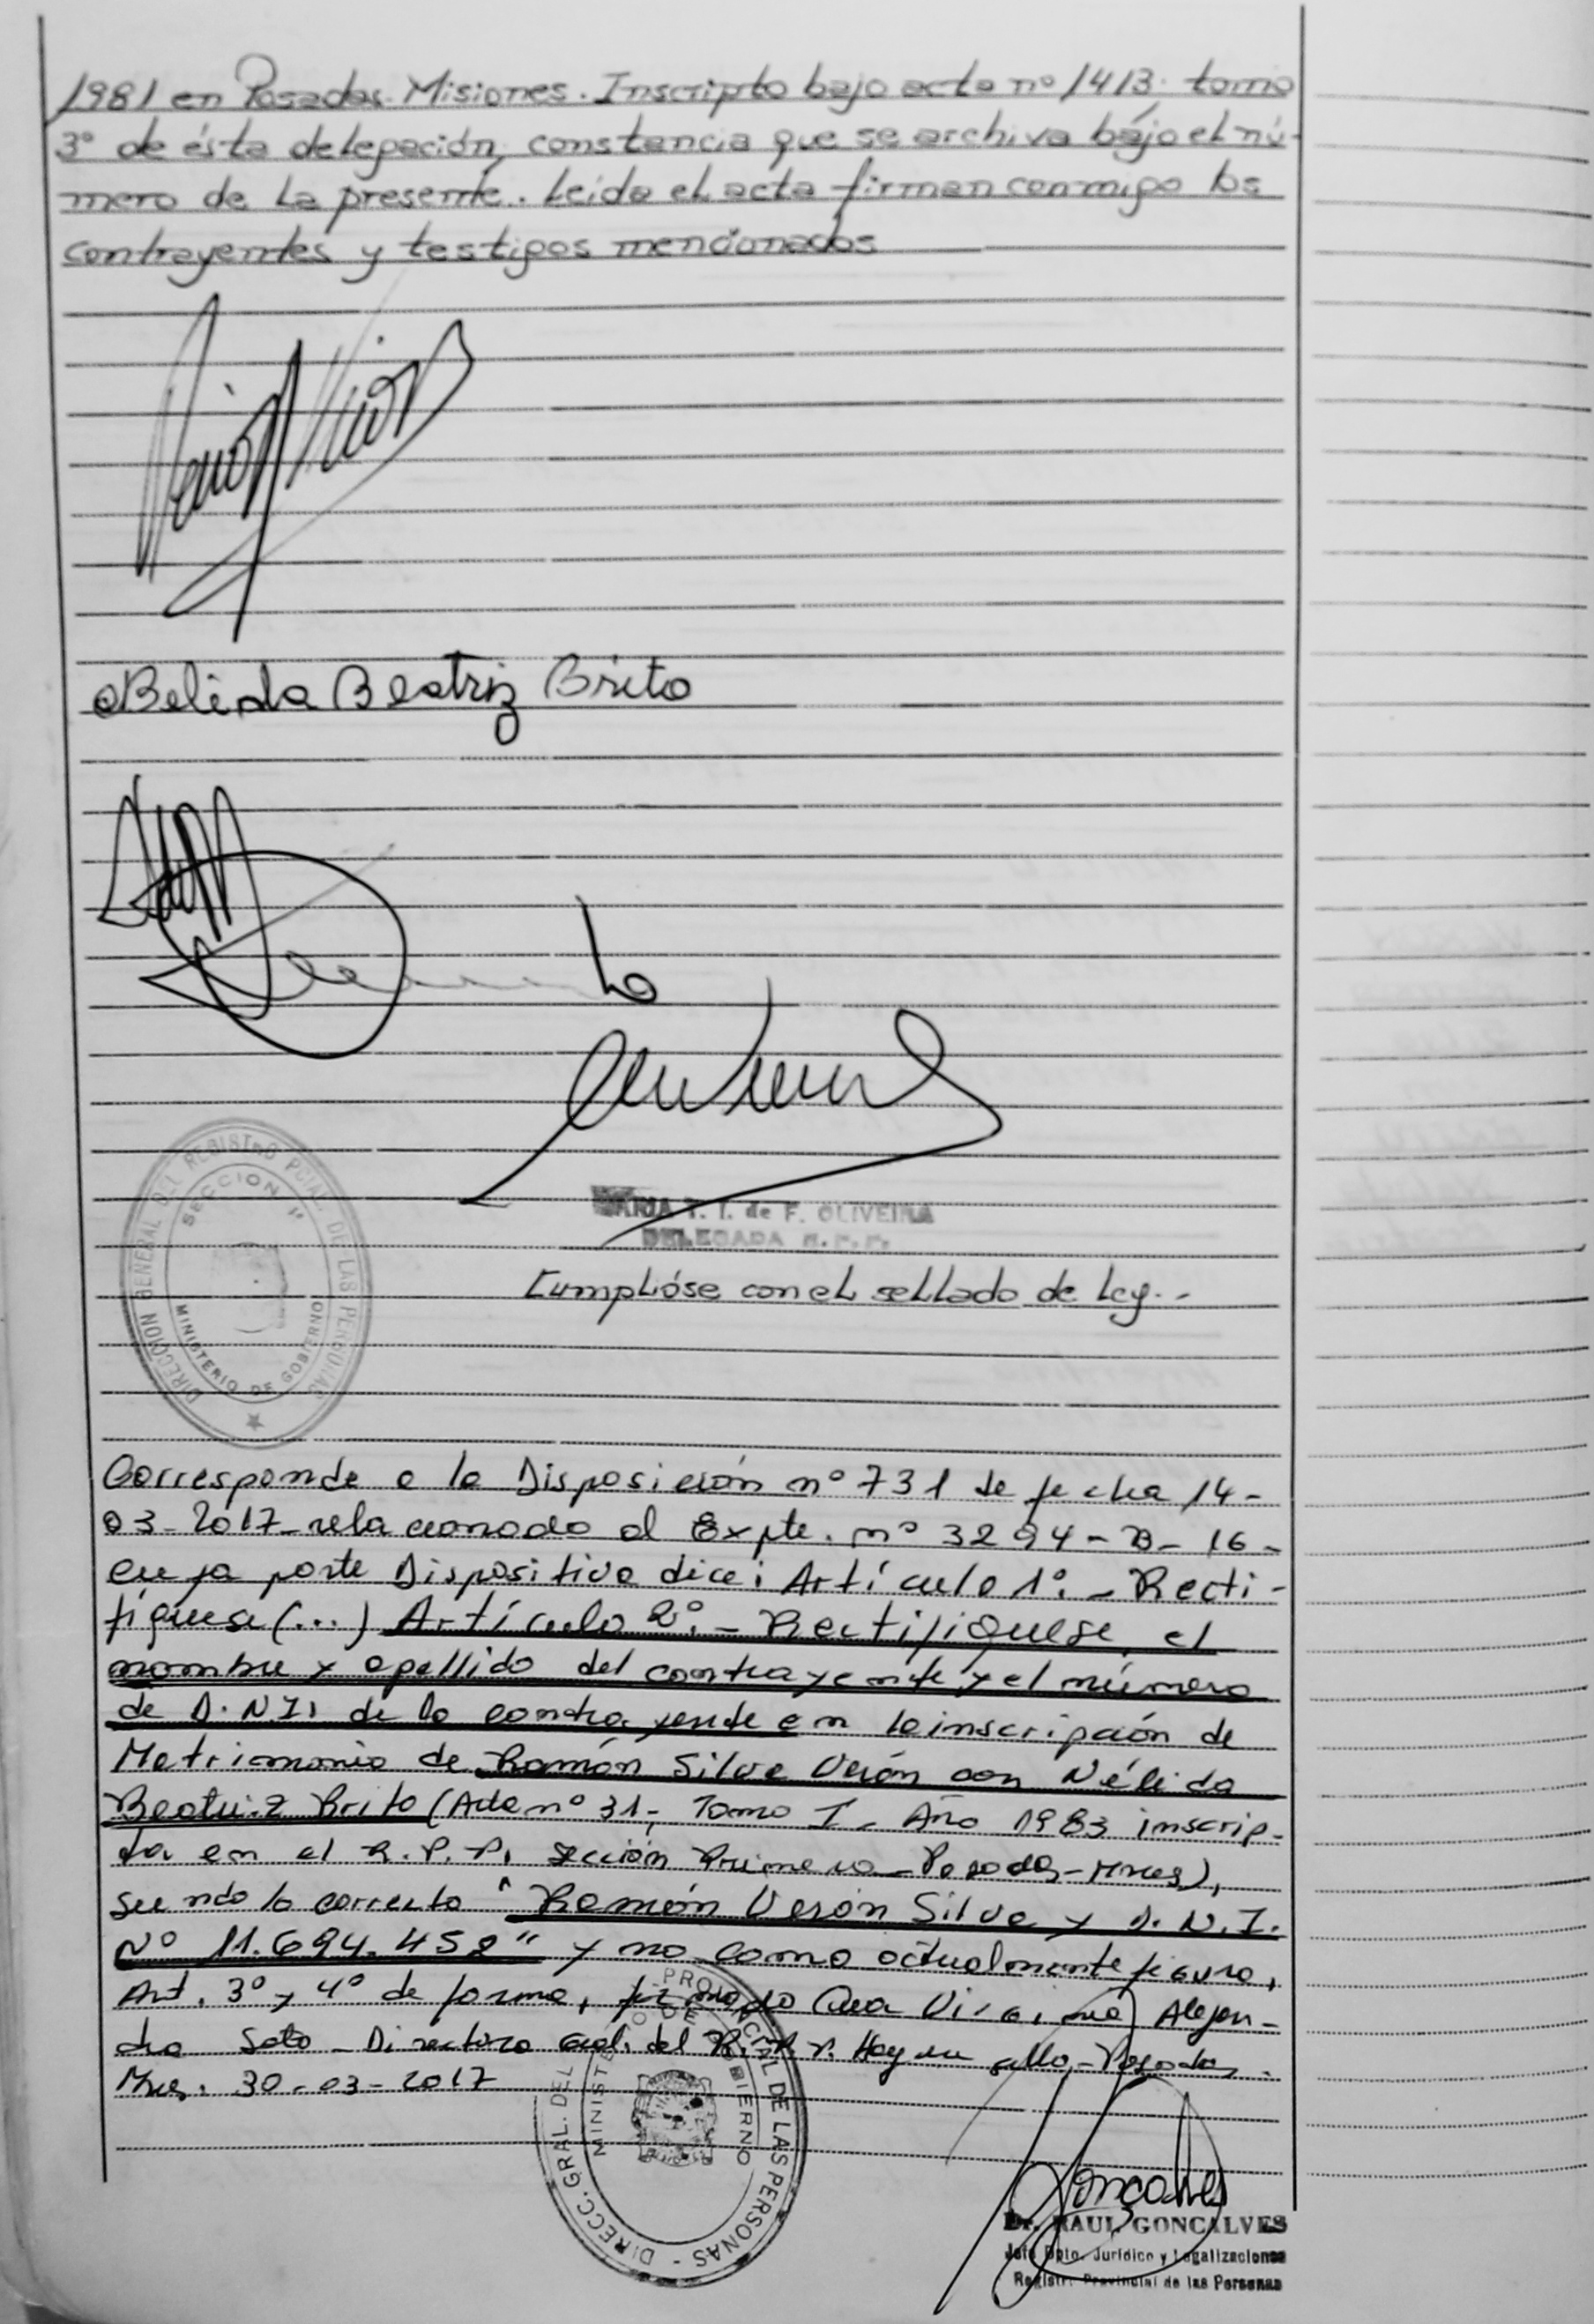 1981 en Posadas. Misiones. Inscripto bajo acta nº 1413. tomo
3º de ésta delegación, constancia que se archiva bajo el nú-
mero de la presente. Leída el acta firman conmigo los
contrayentes y testigos mencionados
Belida Beatriz Brito
DIRECCION GENERAL DEL REGISTRO PCIAL. DE LAS PERSONAS
SECCION 1ª
MINISTERIO DE GOBIERNO
MARIA T. I. de F. OLIVEIRA
DELEGADA R. P. P.
Cumplióse con el sellado de Ley.-
Corresponde a la Disposición nº 731 de fecha 14-
03-2017- relacionado al Expte. nº 3294-B-16-
cuya parte Dispositiva dice: Artículo 1º.- Recti-
fíquese (...) Artículo 2º.- Rectifíquese el
nombre y apellido del contrayente y el número
de D.N.I. de la contrayente en la inscripción de
Matrimonio de Ramón Silva Verón con Nélida
Beatriz Brito (Acta nº 31, Tomo I - Año 1983 inscrip-
ta en el R.P.P. sección Primera - Posadas - Mnes),
siendo lo correcto "Ramón Verón Silva y D.N.I.
Nº 11.694.452" y no como actualmente figura,
Art. 3º y 4º de forma, firmado Ana Virginia Alejan-
dra Soto - Directora Gral. del R.P.P. Hay un sello - Posadas.
Mnes. 30-03-2017
DIRECC. GRAL. DEL PROVINCIAL DE LAS PERSONAS
MINISTERIO DE GOBIERNO
Goncalves
Dr. RAUL GONCALVES
Jefe Dpto. Jurídico y Legalizaciones
Registro Provincial de las Personas